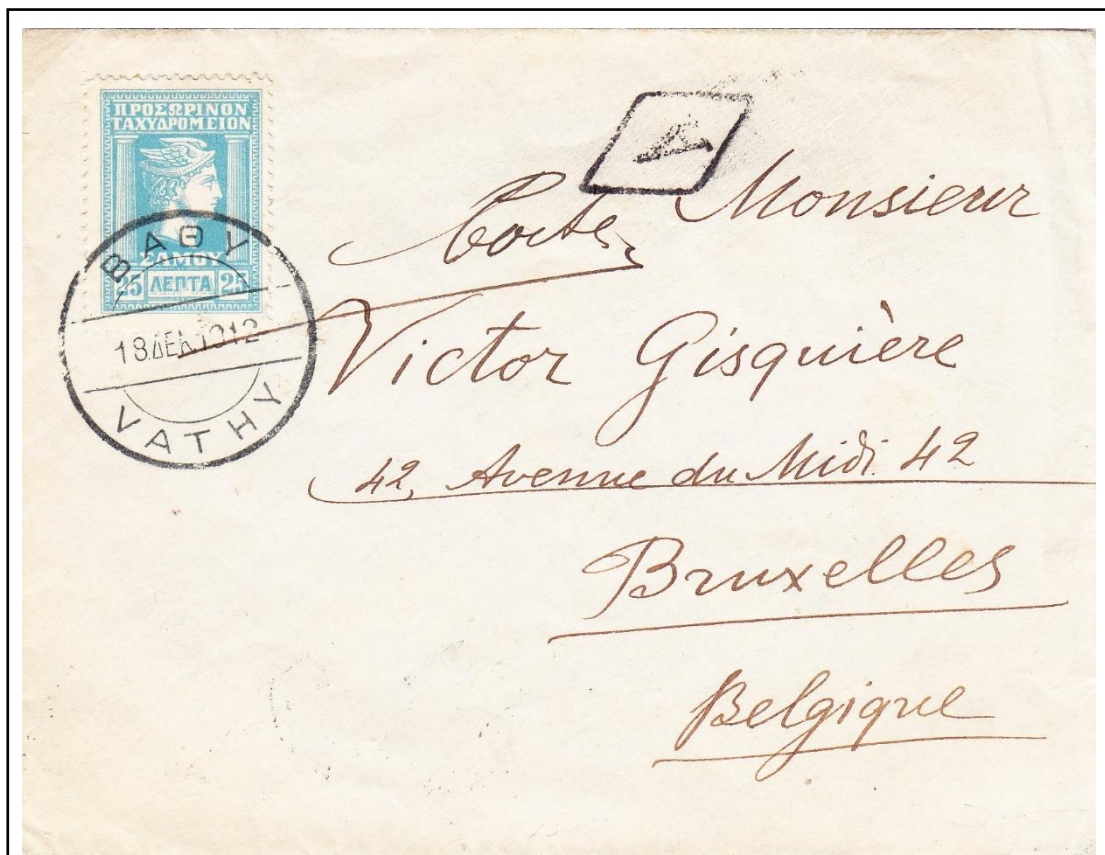 ΠΡΟΣΩΡΙΝΟΝ
ΤΑΧΥΔΡΟΜΕΙΟΝ
ΣΑΜΟΥ
25 ΛΕΠΤΑ 25
ΒΑΘΥ
18.ΔΕΚ.1912
VATHY
Monsieur
Victor Gisquière
42, Avenue du Midi 42
Bruxelles
Belgique